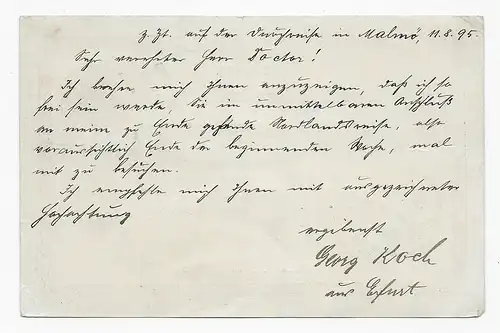 z. Zt. auf der Durchreise in Malmö, 11.8.95.
Sehr verehrter Herr Doctor!
Ich beehre mich Ihnen anzuzeigen, daß ich so
frei sein werde, Sie in unmittelbarem Anschluß
an meine zu Ende gehende Nordlandsreise, also
voraussichtlich Ende der beginnenden Woche, mal
mit zu besuchen.
Ich empfehle mich Ihnen mit ausgezeichneter
Hochachtung
ergebenst
Georg Koch
aus Erfurt